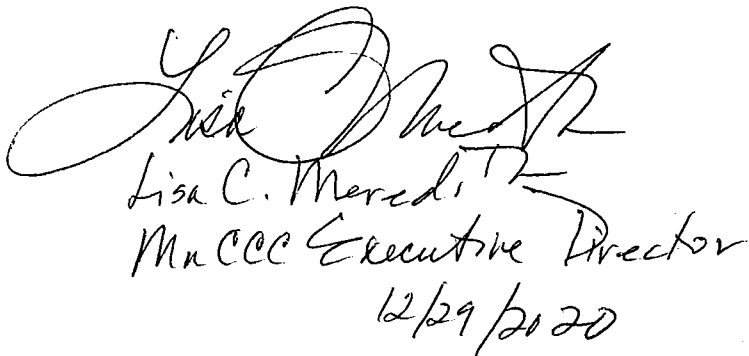 Lisa C Meredith
Lisa C. Meredith
MnCCC Executive Director
12/29/2020